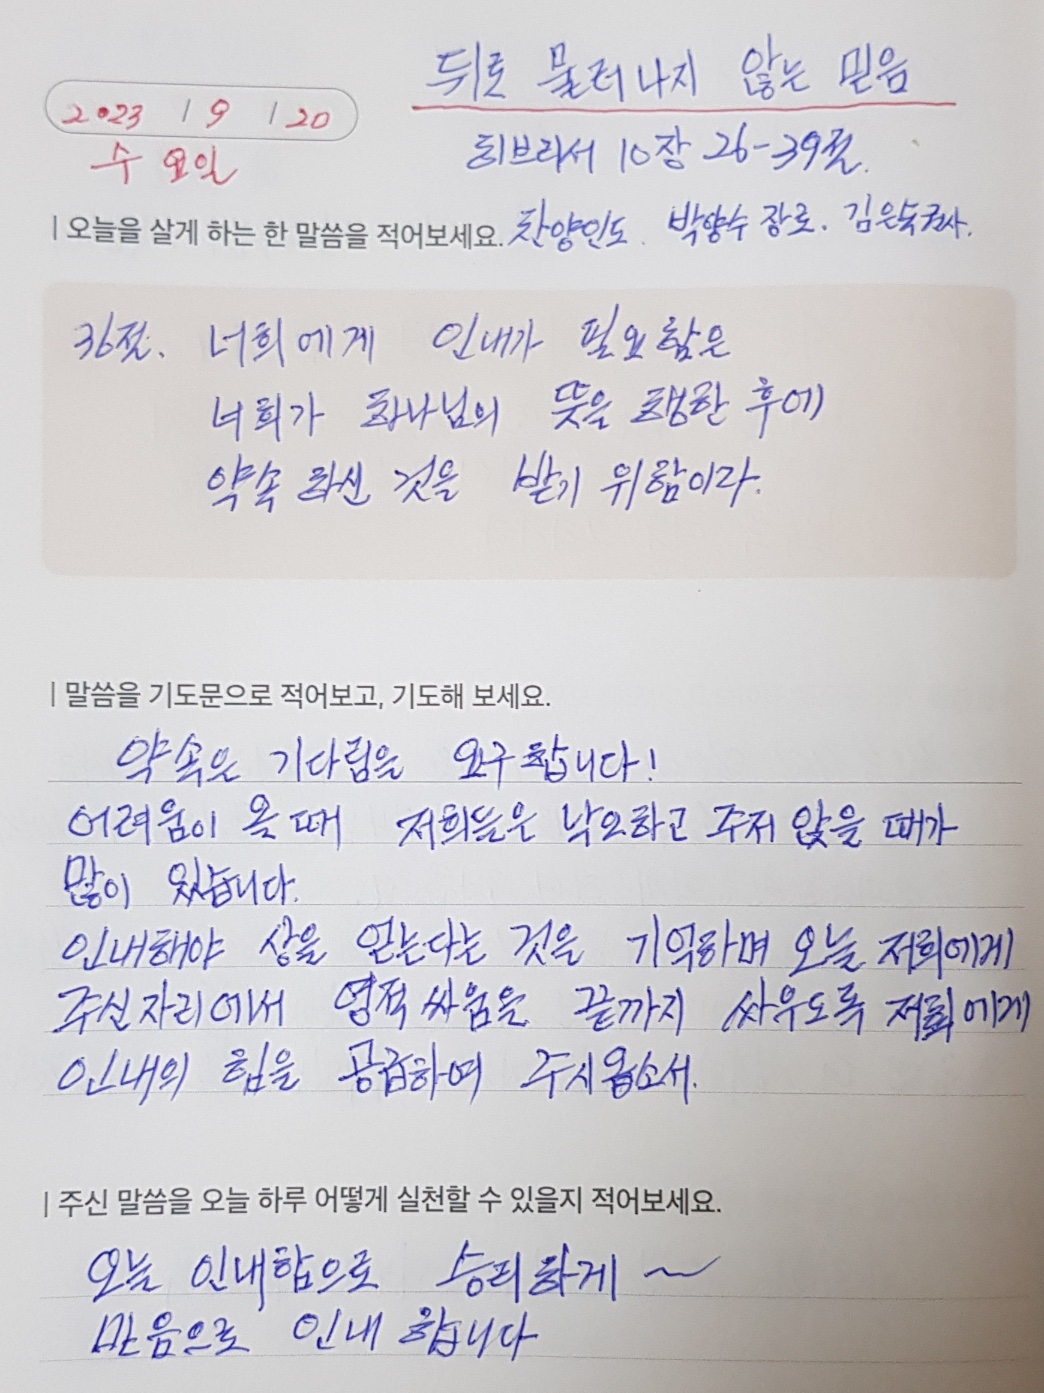 뒤로 물러나지 않는 믿음
2023 / 9 / 20
수요일
히브리서 10장 26-39절.
| 오늘을 살게 하는 한 말씀을 적어보세요. 찬양인도. 박양수 장로. 김은숙권사.
36절. 너희에게 인내가 필요함은
너희가 하나님의 뜻을 행한 후에
약속 하신 것을 받기 위함이라.
| 말씀을 기도문으로 적어보고, 기도해 보세요.
약속은 기다림을 요구합니다!
어려움이 올 때 저희들은 낙오하고 주저 앉을 때가
많이 있습니다.
인내해야 상을 얻는다는 것을 기억하며 오늘 저희에게
주신 자리에서 영적 싸움을 끝까지 싸우도록 저희에게
인내의 힘을 공급하여 주시옵소서.
| 주신 말씀을 오늘 하루 어떻게 실천할 수 있을지 적어보세요.
오늘 인내함으로 승리하게 ~
믿음으로 인내 합니다